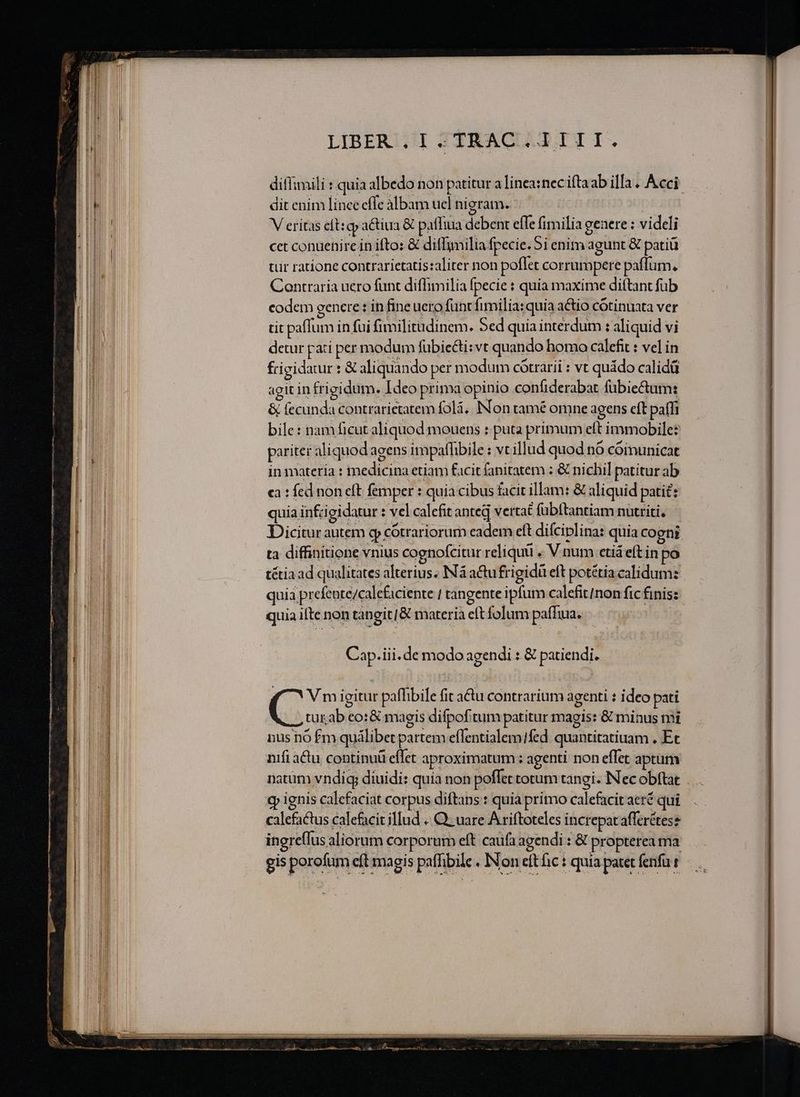 LIBER . I . TRAC . IIII I.
diſſimili : quia albedo non patitur a linea:nec iſta ab illa . Acci
dit enim lineę eſſe albam uel nigram.
Veritas eſt:ꝙ actiua & paſſiua debent eſſe ſimilia genere : videli
cet conuenire in iſto: & diſſimilia ſpecie. Si enim agunt & patiũ
tur ratione contrarietatis:aliter non poſſet corrumpere paſſum.
Contraria uero ſunt diſſimilia ſpecie : quia maxime diſtant ſub
eodem genere : in fine uero ſunt ſimilia: quia actio cõtinuata ver
tit paſſum in ſui ſimilitudinem. Sed quia interdum : aliquid vi
detur pati per modum ſubiecti: vt quando homo calefit : vel in
frigidatur : & aliquando per modum cõtrarii : vt quãdo calidũ
agit in frigidum. Ideo prima opinio conſiderabat ſubiectum:
& ſecunda contrarietatem ſolã. Non tamẽ omne agens eſt paſſi
bile : nam ſicut aliquod mouens : puta primum eſt immobile:
pariter aliquod agens impaſſibile : vt illud quod nõ cõmunicat
in materia : medicina etiam facit ſanitatem : & nichil patitur ab
ea : ſed non eſt ſemper : quia cibus facit illam: & aliquid patit̃:
quia infrigidatur : vel calefit anteq̃ vertat̃ ſubſtantiam nutriti.
Dicitur autem ꝙ cõtrariorum eadem eſt diſciplina: quia cogni
ta diffinitione vnius cognoſcitur reliquũ . Vnum etiã eſt in po
tẽtia ad qualitates alterius. Nã actu frigidũ eſt potẽtia calidum:
quia preſente/calefaciente / tangente ipſum calefit/non ſic finis:
quia iſte non tangit/& materia eſt ſolum paſſiua.
Cap.iii.de modo agendi : & patiendi.
CVm igitur paſſibile ſit actu contrarium agenti : ideo pati
tur ab eo:& magis diſpoſitum patitur magis: & minus mi
nus nõ ẜm quãlibet partem eſſentialem/ſed quantitatiuam . Et
niſi actu continuũ eſſet aproximatum : agenti non eſſet aptum
natum vndiq; diuidi: quia non poſſet totum tangi. Nec obſtat
ꝙ ignis calefaciat corpus diſtans : quia primo calefacit aerẽ qui
calefactus calefacit illud . Quare Ariſtoteles increpat aſſerẽtes:
ingreſſus aliorum corporum eſt cauſa agendi : & propterea ma
gis poroſum eſt magis paſſibile . Non eſt ſic : quia patet ſenſu :